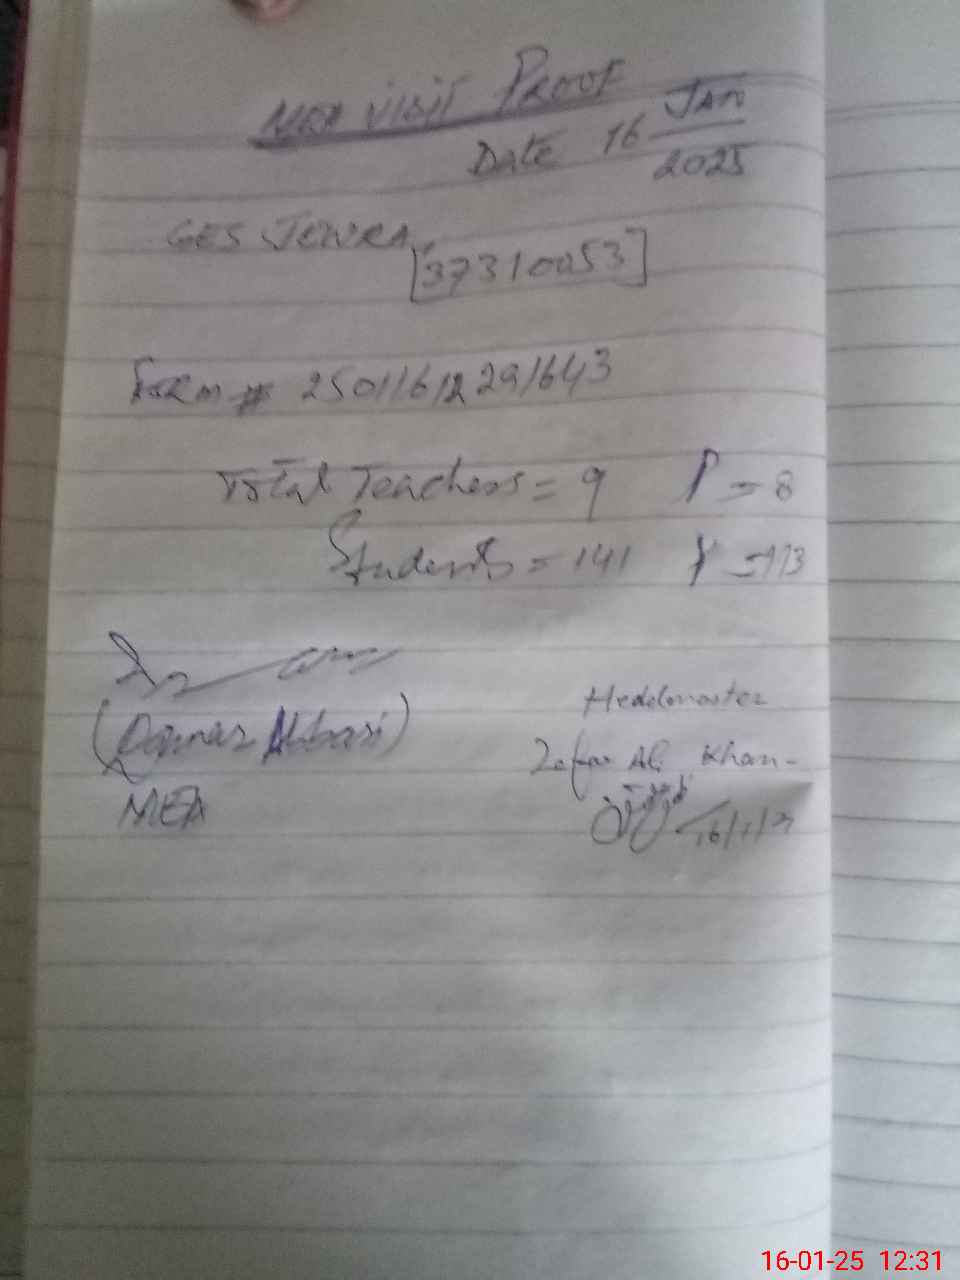 MEA VISIT PROOF
Date 16 JAN
2025
GES JEWRA,
[37310053]
Form # 25011612291643
Total Teachers = 9 P = 8
Students = 141 P = 113
(Qamar Abbasi)
MEA
Headmaster
Zafar Ali Khan
16/1/
16-01-25 12:31